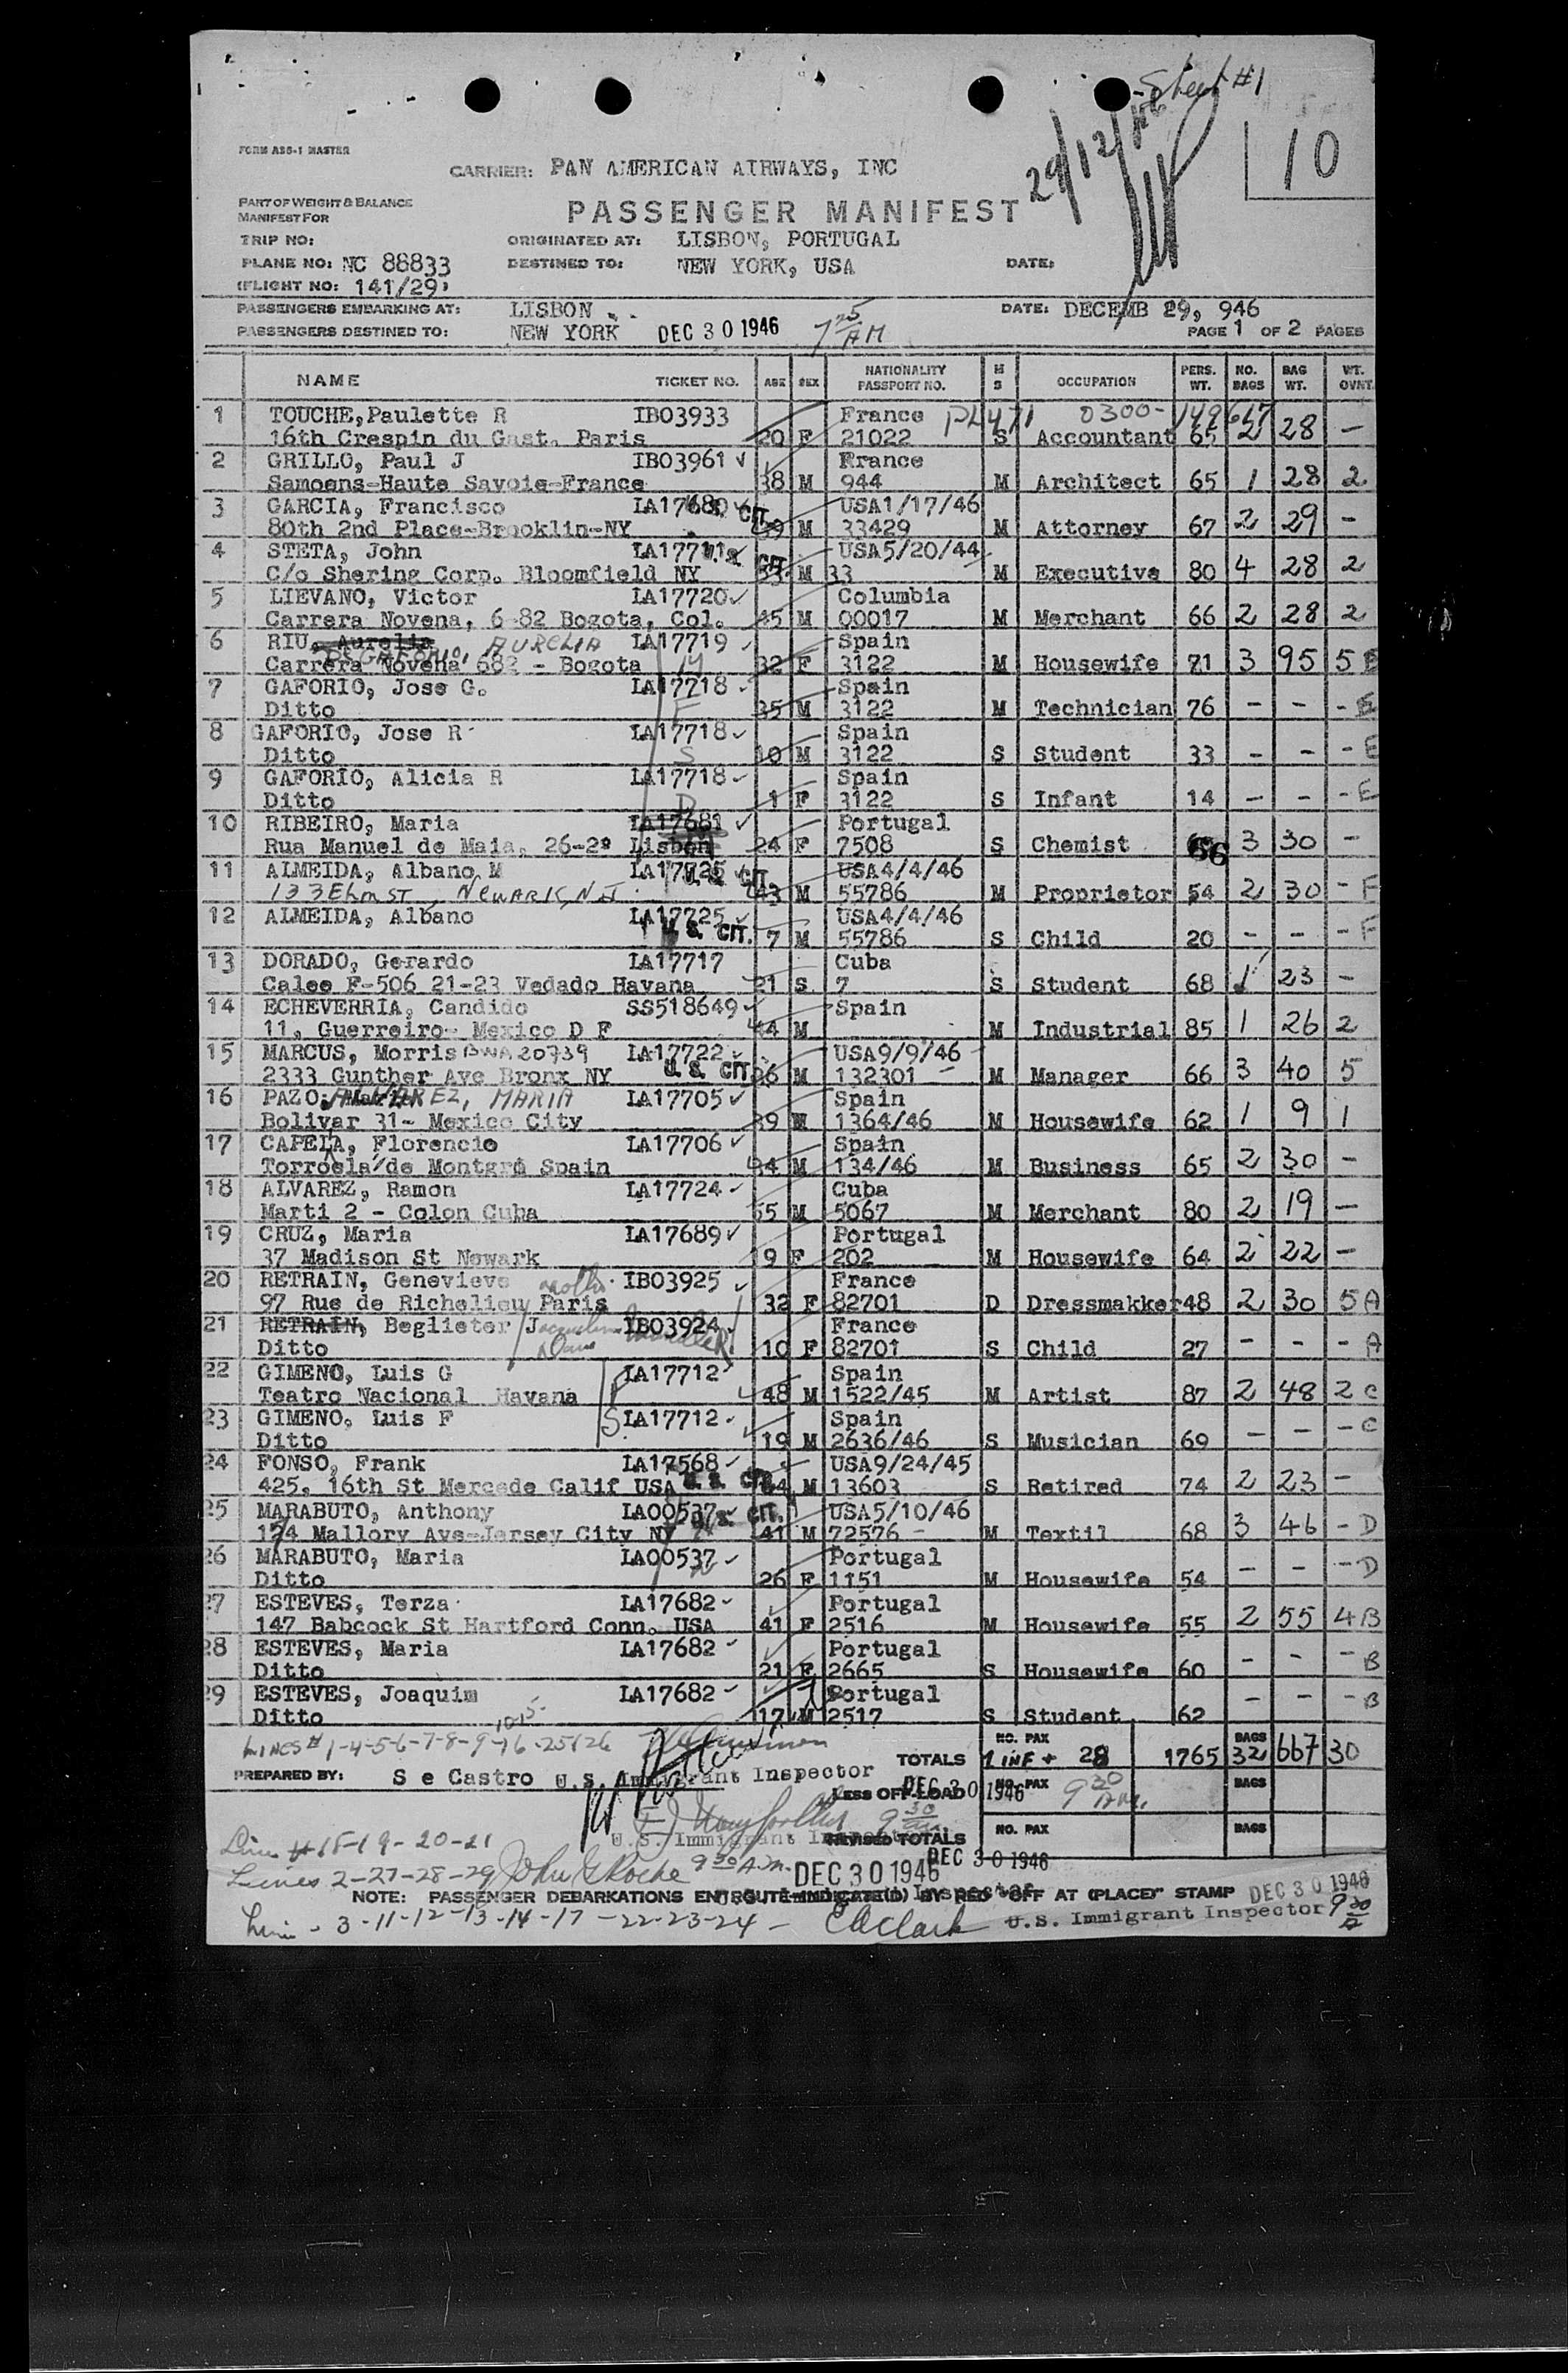 Sheet #1
29/12/46
10
FORM ASS-1 MASTER
CARRIER: PAN AMERICAN AIRWAYS, INC
PART OF WEIGHT & BALANCE
MANIFEST FOR
PASSENGER MANIFEST
TRIP NO:
ORIGINATED AT: LISBON, PORTUGAL
PLANE NO: NC 88833
DESTINED TO: NEW YORK, USA
DATE:
(FLIGHT NO: 141/29)
PASSENGERS EMBARKING AT: LISBON
DATE: DECEMB 29, 946
PASSENGERS DESTINED TO: NEW YORK DEC 30 1946 7 25 AM
PAGE 1 OF 2 PAGES
NAME TICKET NO. AGE SEX NATIONALITY PASSPORT NO. M S OCCUPATION PERS. WT. NO. BAGS BAG WT. WT. OVNT.
1 TOUCHE, Paulette R IB03933 France 0300-
16th Crespin du Gast. Paris 20 F 21022 S Accountant 65 2 28 -
2 GRILLO, Paul J IB03961 France
Samoens-Haute Savoie-France 38 M 944 M Architect 65 1 28 2
3 GARCIA, Francisco LA17680 U.S. CIT. USA1/17/46
80th 2nd Place-Brooklin-NY M 33429 M Attorney 67 2 29 -
4 STETA, John LA17711 U.S. CIT. USA5/20/44
C/o Shering Corp. Bloomfield NY M 33 M Executive 80 4 28 2
5 LIEVANO, Victor LA17720 Columbia
Carrera Novena, 6-82 Bogota, Col. 45 M 00017 M Merchant 66 2 28 2
6 RIU, Aurelia DE GAFORIO, AURELIA LA17719 Spain
Carrera Novena 682 - Bogota 32 F 3122 M Housewife 71 3 95 5 E
7 GAFORIO, Jose G. LA17718 Spain
Ditto F 35 M 3122 M Technician 76 - - - E
8 GAFORIO, Jose R LA17718 Spain
Ditto S 10 M 3122 S Student 33 - - - E
9 GAFORIO, Alicia R LA17718 Spain
Ditto D 1 F 3122 S Infant 14 - - - E
10 RIBEIRO, Maria LA17681 Portugal
Rua Manuel de Maia, 26-2º Lisbon 24 F 7508 S Chemist 66 3 30 -
11 ALMEIDA, Albano M LA17725 U.S. CIT. USA4/4/46
133 Elm ST, NEWARK, N.J. 43 M 55786 M Proprietor 54 2 30 - F
12 ALMEIDA, Albano LA17725 USA4/4/46
U.S. CIT. 7 M 55786 S Child 20 - - - F
13 DORADO, Gerardo LA17717 Cuba
Calee F-506 21-23 Vedado Havana 21 S 7 S Student 68 1 23 -
14 ECHEVERRIA, Candido SS518649 Spain
11, Guerreiro- Mexico D F 44 M M Industrial 85 1 26 2
15 MARCUS, Morris BWA20739 LA17722 USA9/9/46
2333 Gunther Ave Bronx NY U.S. CIT. 36 M 132301 M Manager 66 3 40 5
16 PAZO, ALVAREZ, MARIA LA17705 Spain
Bolivar 31- Mexico City 39 M 1364/46 M Housewife 62 1 9 1
17 CAPELA, Florencio LA17706 Spain
Torroela/de Montgró Spain 44 M 134/46 M Business 65 2 30 -
18 ALVAREZ, Ramon LA17724 Cuba
Marti 2 - Colon Cuba 55 M 5067 M Merchant 80 2 19 -
19 CRUZ, Maria LA17689 Portugal
37 Madison St Newark 19 F 202 M Housewife 64 2 22 -
20 RETRAIN, Genevieve mother IB03925 France
97 Rue de Richelieu Paris 32 F 82701 D Dressmakker 48 2 30 5 A
21 RETRAIN, Beglieter Jacqueline IB03924 France
Ditto 10 F 82701 S Child 27 - - - A
22 GIMENO, Luis G LA17712 Spain
Teatro Nacional Havana F 48 M 1522/45 M Artist 87 2 48 2 C
23 GIMENO, Luis F S LA17712 Spain
Ditto 19 M 2636/46 S Musician 69 - - - C
24 FONSO, Frank LA17568 USA9/24/45
425, 16th St Mercede Calif USA U.S. CIT. 64 M 13603 S Retired 74 2 23 -
25 MARABUTO, Anthony LA00537 U.S. CIT. USA5/10/46
174 Mallory Ave-Jersey City NY 41 M 72576 M Textil 68 3 46 - D
26 MARABUTO, Maria LA00537 Portugal
Ditto 26 F 1151 M Housewife 54 - - - D
27 ESTEVES, Terza LA17682 Portugal
147 Babcock St Hartford Conn. USA 41 F 2516 M Housewife 55 2 55 4 B
28 ESTEVES, Maria LA17682 Portugal
Ditto 21 F 2665 S Housewife 60 - - - B
29 ESTEVES, Joaquim LA17682 Portugal
Ditto 17 M 2517 S Student 62 - - - B
LINES # 1-4-5-6-7-8-9-16-25-26 10-15-
TOTALS NO. PAX 1 INF + 28 1765 BAGS 32 667 30
PREPARED BY: S e Castro U.S. Immigrant Inspector
LESS OFF-LOAD DEC 30 1946 NO. PAX 9 30 AM. BAGS
U.S. Immigrant Inspector 9 30 REVISED TOTALS NO. PAX BAGS
Line # 18-19-20-21
DEC 30 1946
Lines 2-27-28-29 John E Roche 9 30 A.M. DEC 30 1946
NOTE: PASSENGER DEBARKATIONS ENROUTE INDICATED BY RED "OFF AT (PLACE)" STAMP DEC 30 1946
Line - 3-11-12-13-14-17-22-23-24- EAClark U.S. Immigrant Inspector 9 30 A